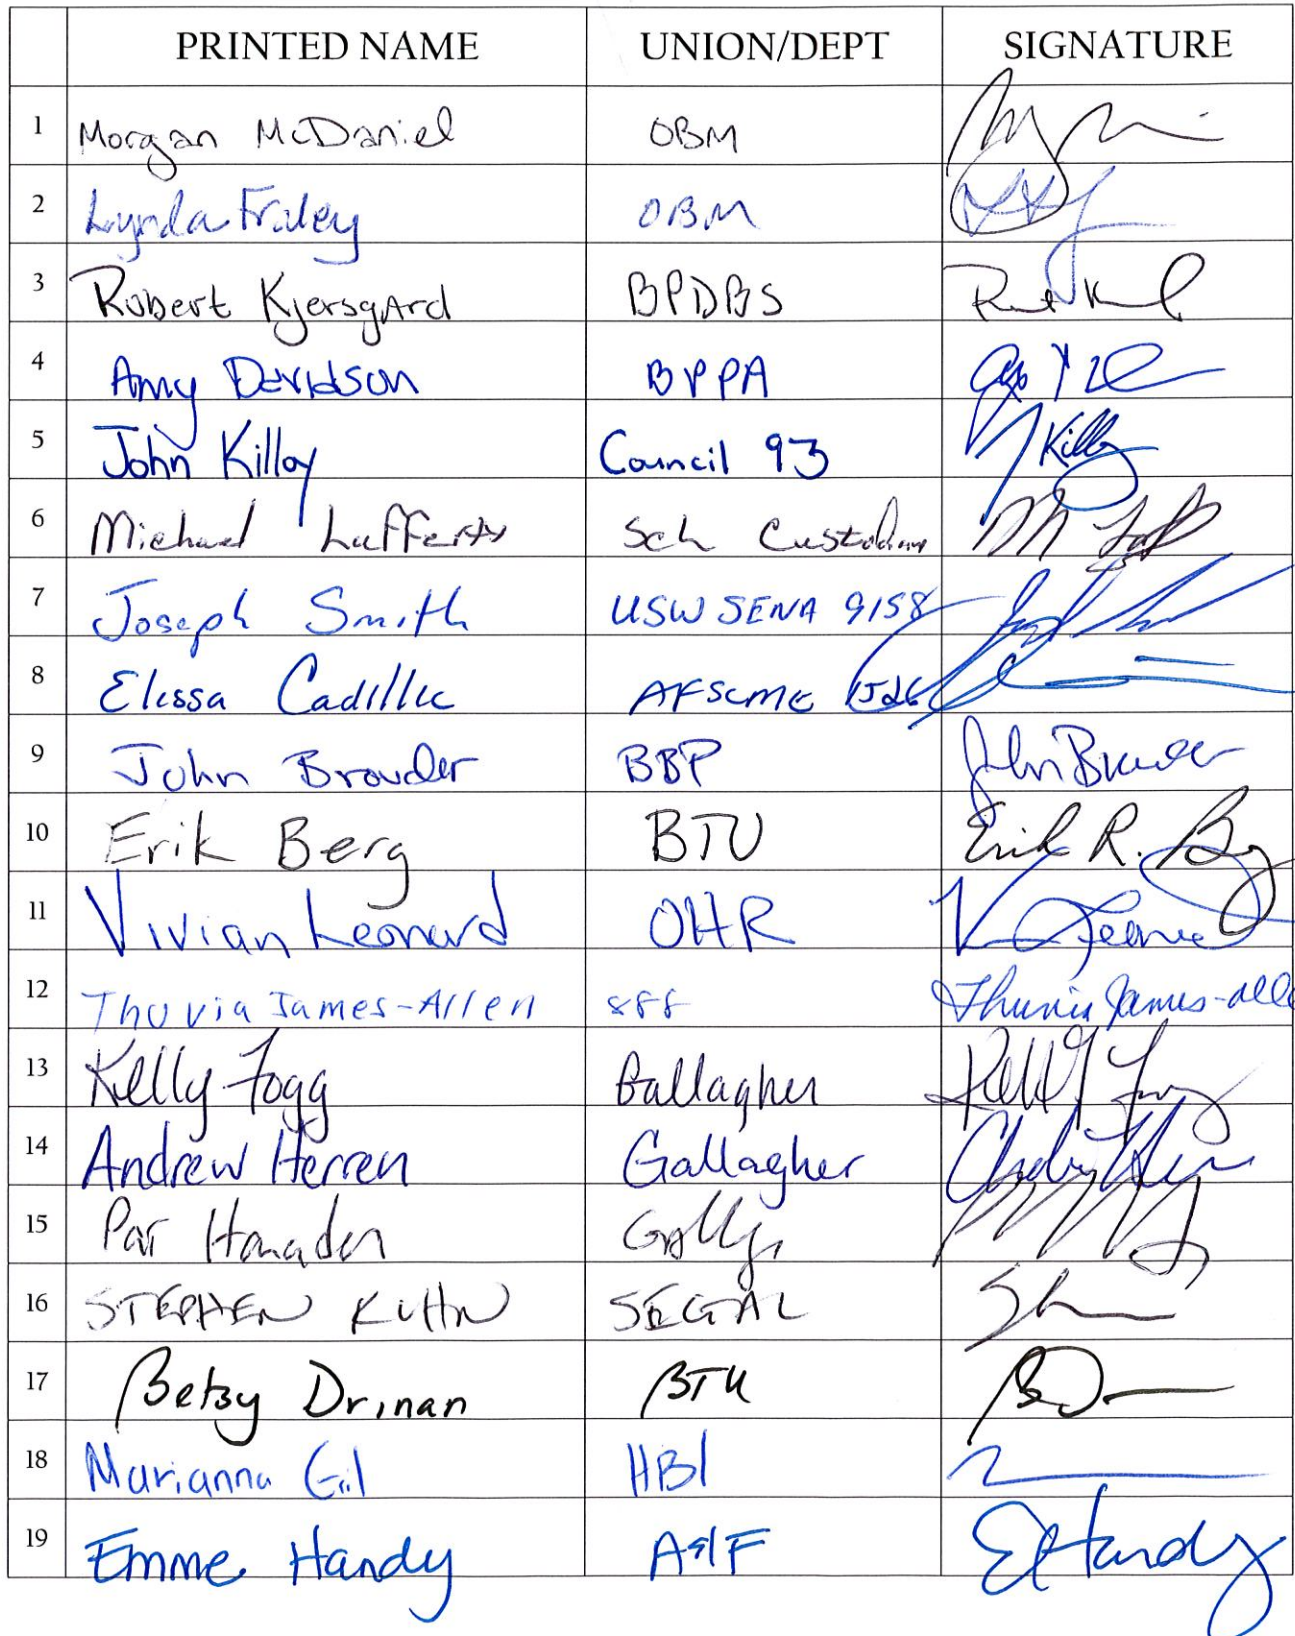 PRINTED NAME UNION/DEPT SIGNATURE
1 Morgan McDaniel OBM
2 Lynda Fraley OBM
3 Robert Kjersgard BPDBS
4 Amy Davidson BPPA
5 John Killoy Council 93 J Killoy
6 Michael Lafferty Sch Custodian
7 Joseph Smith USW SENA 9158
8 Elissa Cadillic AFSCME 1526
9 John Browder BBP John Browder
10 Erik Berg BTU Erik R. Berg
11 Vivian Leonard OHR V Leonard
12 Thuvia James-Allen 888 Thuvia James-Alle
13 Kelly Fogg Gallagher Kelly Fogg
14 Andrew Herren Gallagher
15 Pat
16 STEPHEN KUHN SEGAL
17 Betsy Drinan BTU
18 Marianna Gil HBI
19 Emme Handy A&F E Handy